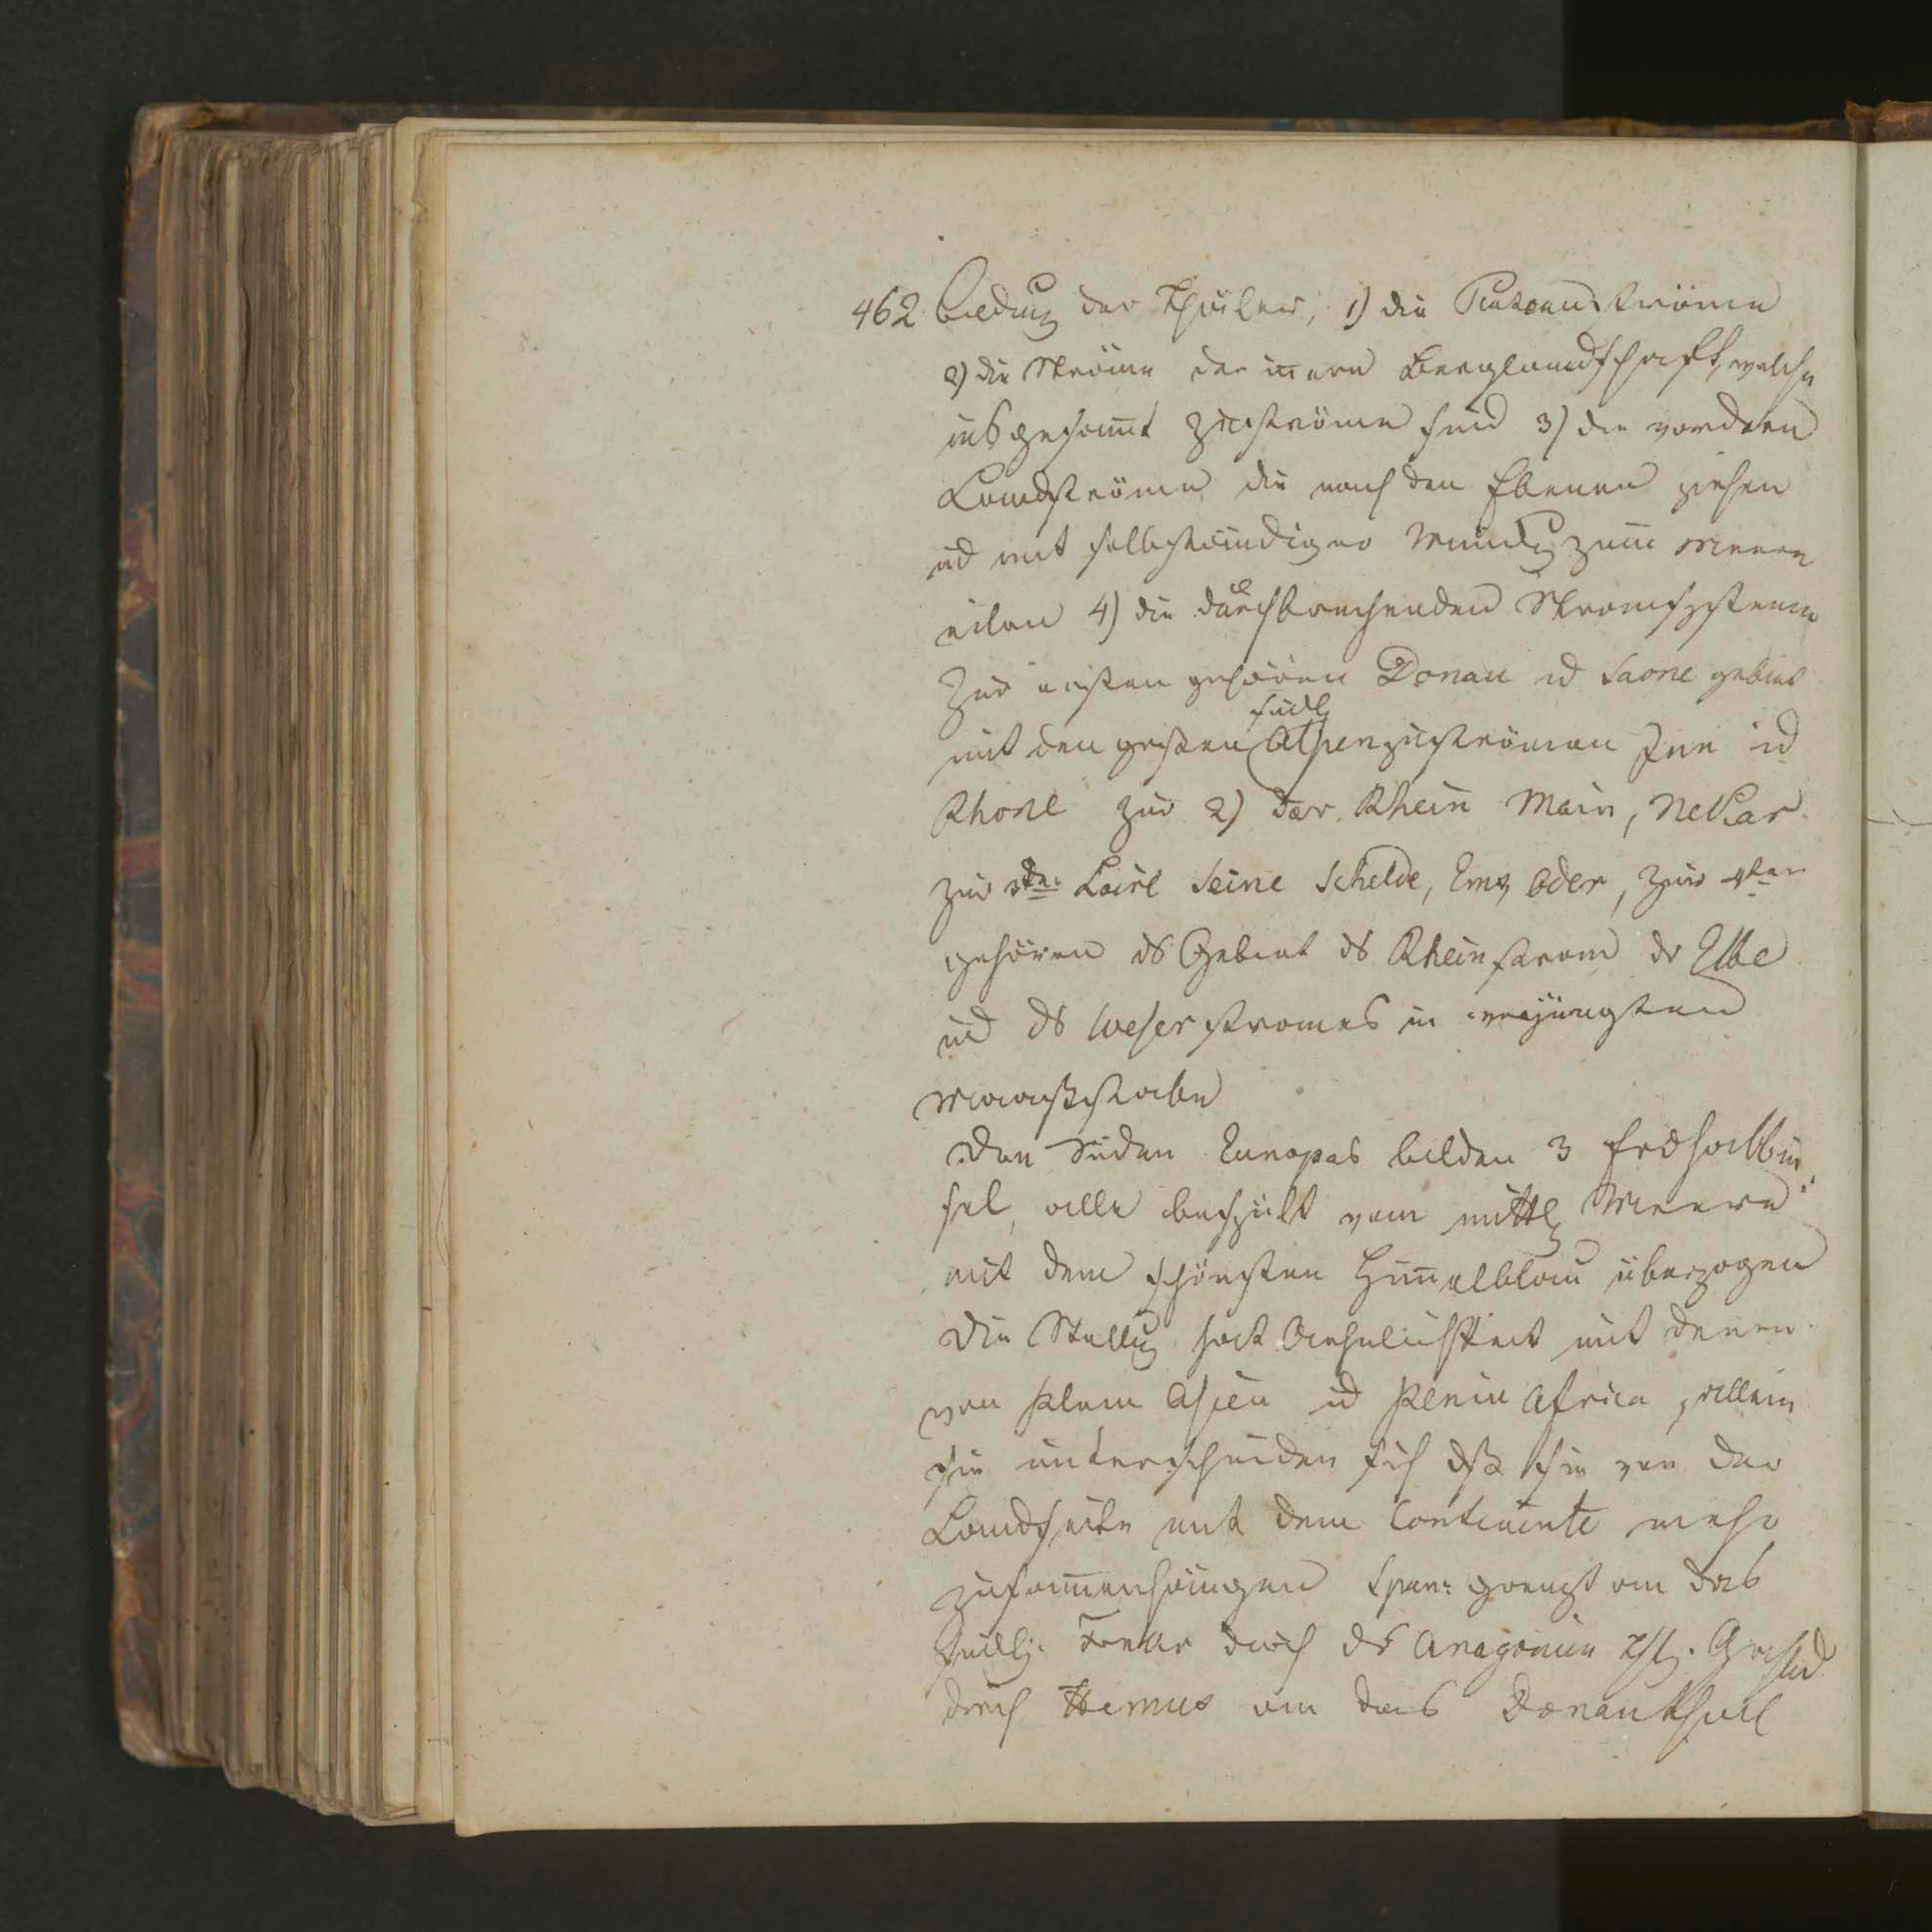 462. bildug der Thäler, 1) die Plateauströme
2) die Ströme der innern Berglandschaft, welche
insgesammt Zuströme sind 3) die vordern
Landströme die nach den Ebenen ziehen
ud mit selbständiger Mündg zum Meere
eilen 4) die durchbrechenden Stromsysteme
Zur ersten gehören Donau ud Saone gebiet
mit den großen südl Alpenzuströmen Inn ud
Rhone zur 2) der Rhein Main, Nekar.
zur 3ten Loire Seine Schelde, Ems Oder, zur 4ten
gehören ds Gebiet ds Rheinstrom dr Elbe
ud ds Weserstromes in verjüngsten
Maaßstabe
Den Süden Europas bilden 3 Erdhalbin
sel, alle bespült vom mittl Meere
mit dem schönsten Himmelblau überzogen
Die Stellug hat Aehnlichkeit mit denen
von Asien ud Africa, allein
sie unterscheiden sich dß sie von der
Landseite mit dem Continente mehr
zusammenhängen Span: grenzt an das
südl. durch ds Aragonien
durch Hemus an das Donauthal